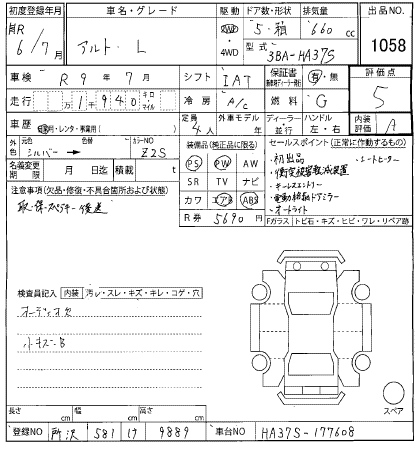 初度登録年月 車名・グレード 駆動 ドア数・形状 排気量 出品NO.
R 6/7月 アルト・L 2WD 4WD 5・箱 660 cc 1058
型式 3BA-HA37S
車検 R 9年7月 シフト IAT 保証書 有・無 評価点 5
走行 万 1,940 キロ マイル 冷房 A/C 燃料 G
車歴 自家用・レンタ・事業用( ) 定員 4人 外車モデル 年 ディーラー 並行 ハンドル 左・右 内装評価 A
外色 元色 シルバー → 色替 カラーNO Z2S
名義変更期限 月 日迄 積載 t
装備品(純正品に限る)
PS PW AW
SR TV ナビ
カワ エアB ABS
R券 5690円
セールスポイント(正常に作動するもの)
・初出品 ・シートヒーター
・衝突被害軽減装置
・キーレスエントリー
・電動格納ドアミラー
・オートライト
Fガラス トビ石・キズ・ヒビ・ワレ・リペア跡
注意事項(欠品・修復・不具合箇所および状態)
取・保・スペアキー後送
検査員記入 内装 汚レ・スレ・キズ・キレ・コゲ・穴
オーディオ欠
小キズ・B
スペア
長さ cm 幅 cm 高さ cm
登録NO 所沢 581 け 9889 車台NO HA37S-177608